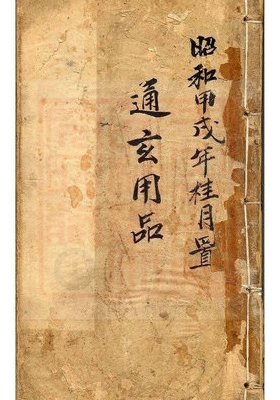 昭和甲戌年桂月置
通玄用品